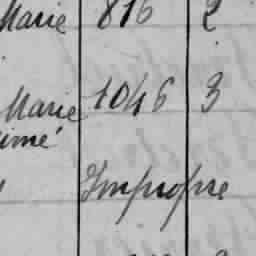 Marie 816 2
Marie 1046 3
imé
Impropre